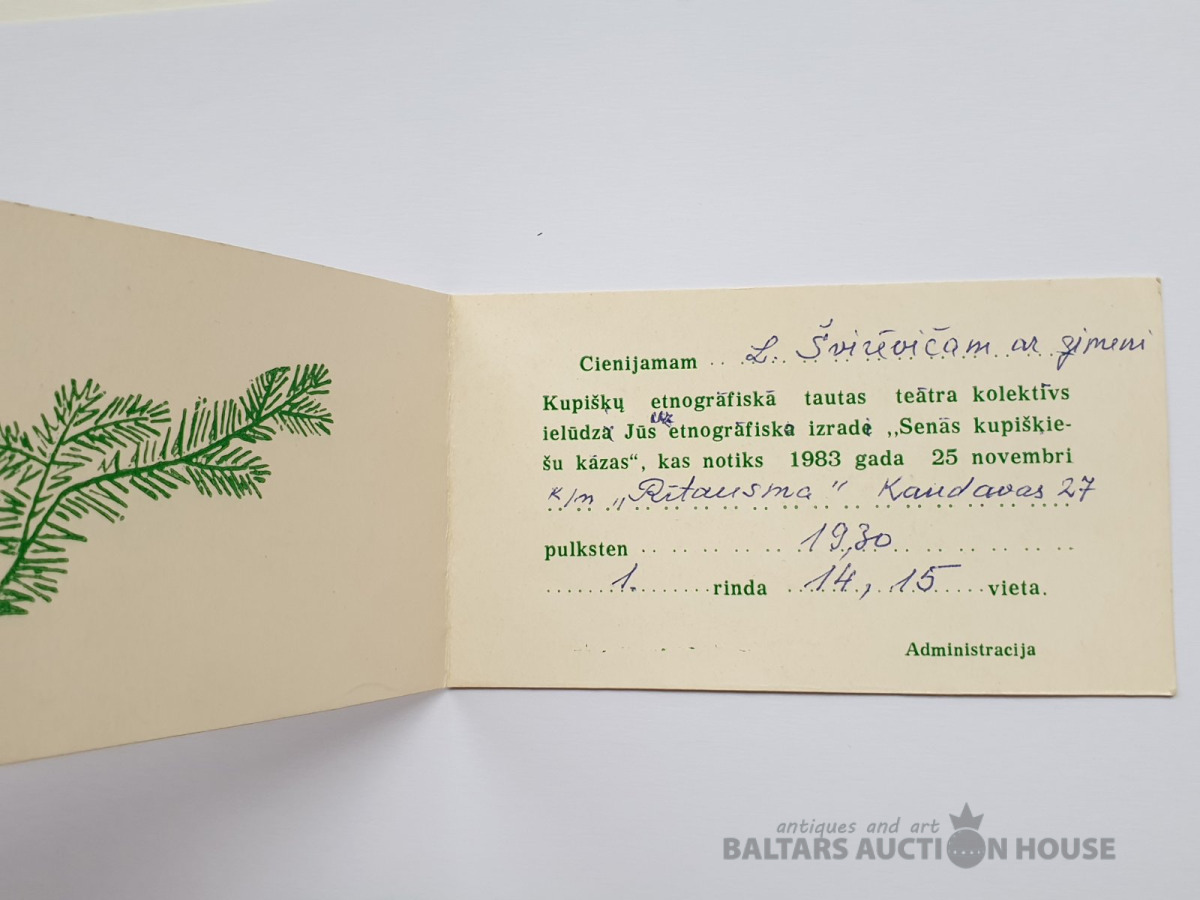 Cienijamam .. L. Švirēvičam ar ģimeni
Kupišķų etnogrāfiskā tautas teātra kolektīvs
ielūdza Jūs uz etnogrāfiska izrade ,,Senās kupišķie-
šu kāzas“, kas notiks 1983 gada 25 novembri
k/n „Ritausma“ Kandavas 27
pulksten 19,30
1. rinda 14, 15 vieta.
Administracija
antiques and art
BALTARS AUCTION HOUSE